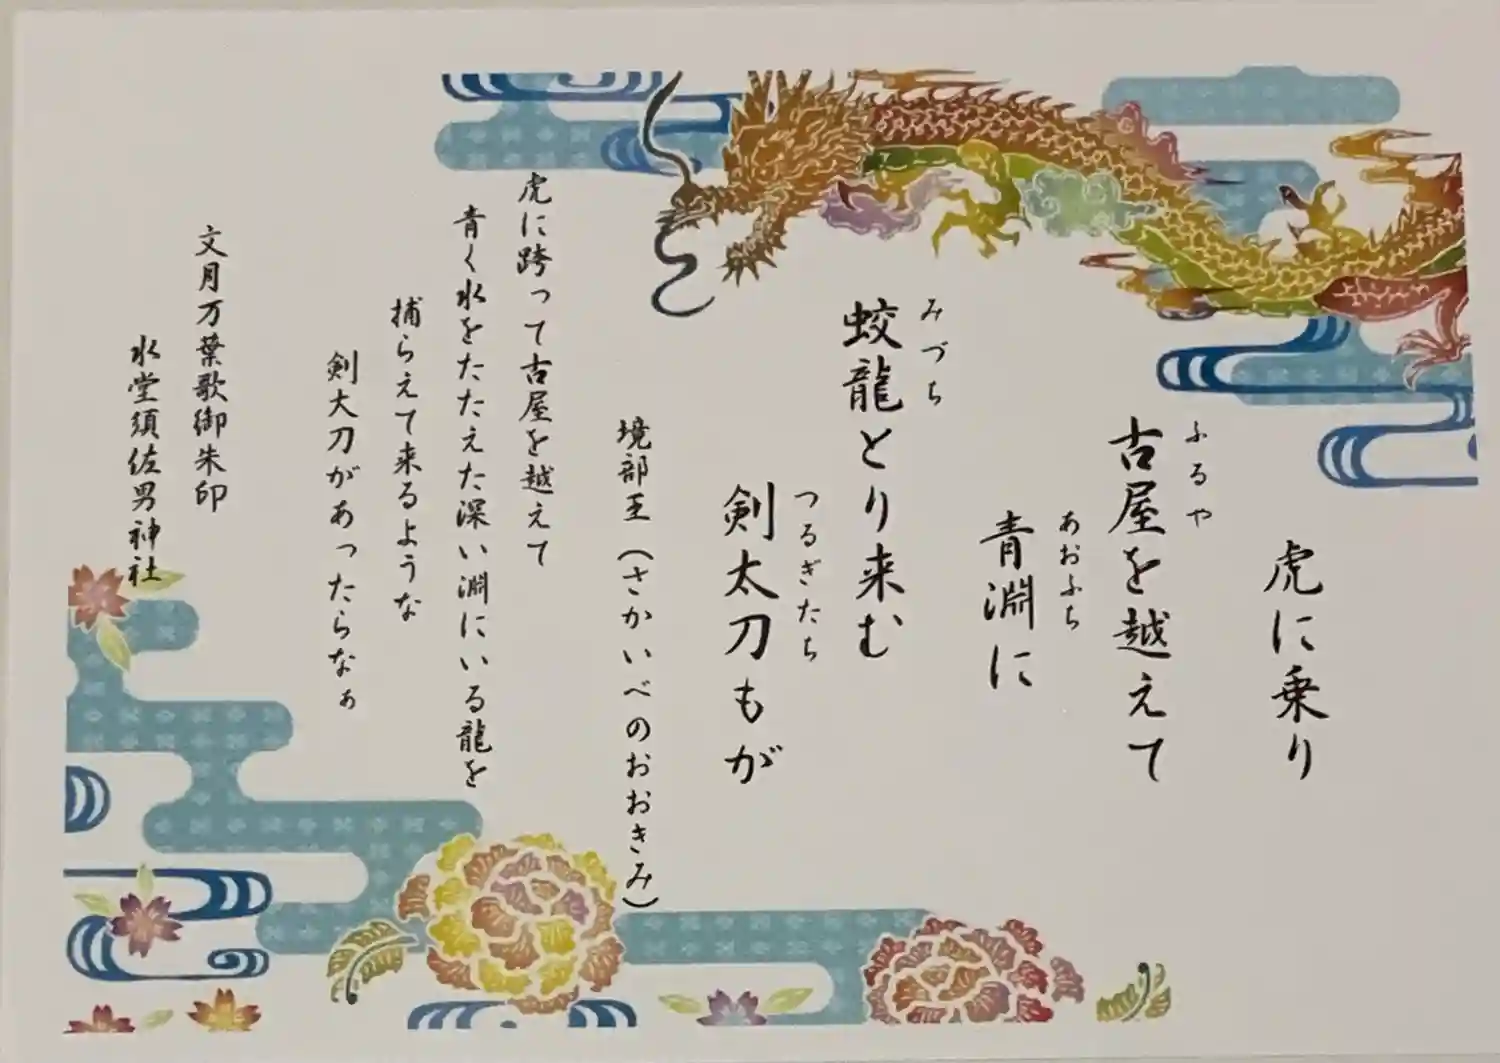 虎に乗り
ふるや
古屋を越えて
あおふち
青淵に
みづち
蛟龍とり来む
つるぎたち
剣太刀もが
境部王（さかいべのおおきみ）
虎に跨って古屋を越えて
青く水をたたえた深い淵にいる龍を
捕らえて来るような
剣大刀があったらなぁ
文月万葉歌御朱印
水堂須佐男神社